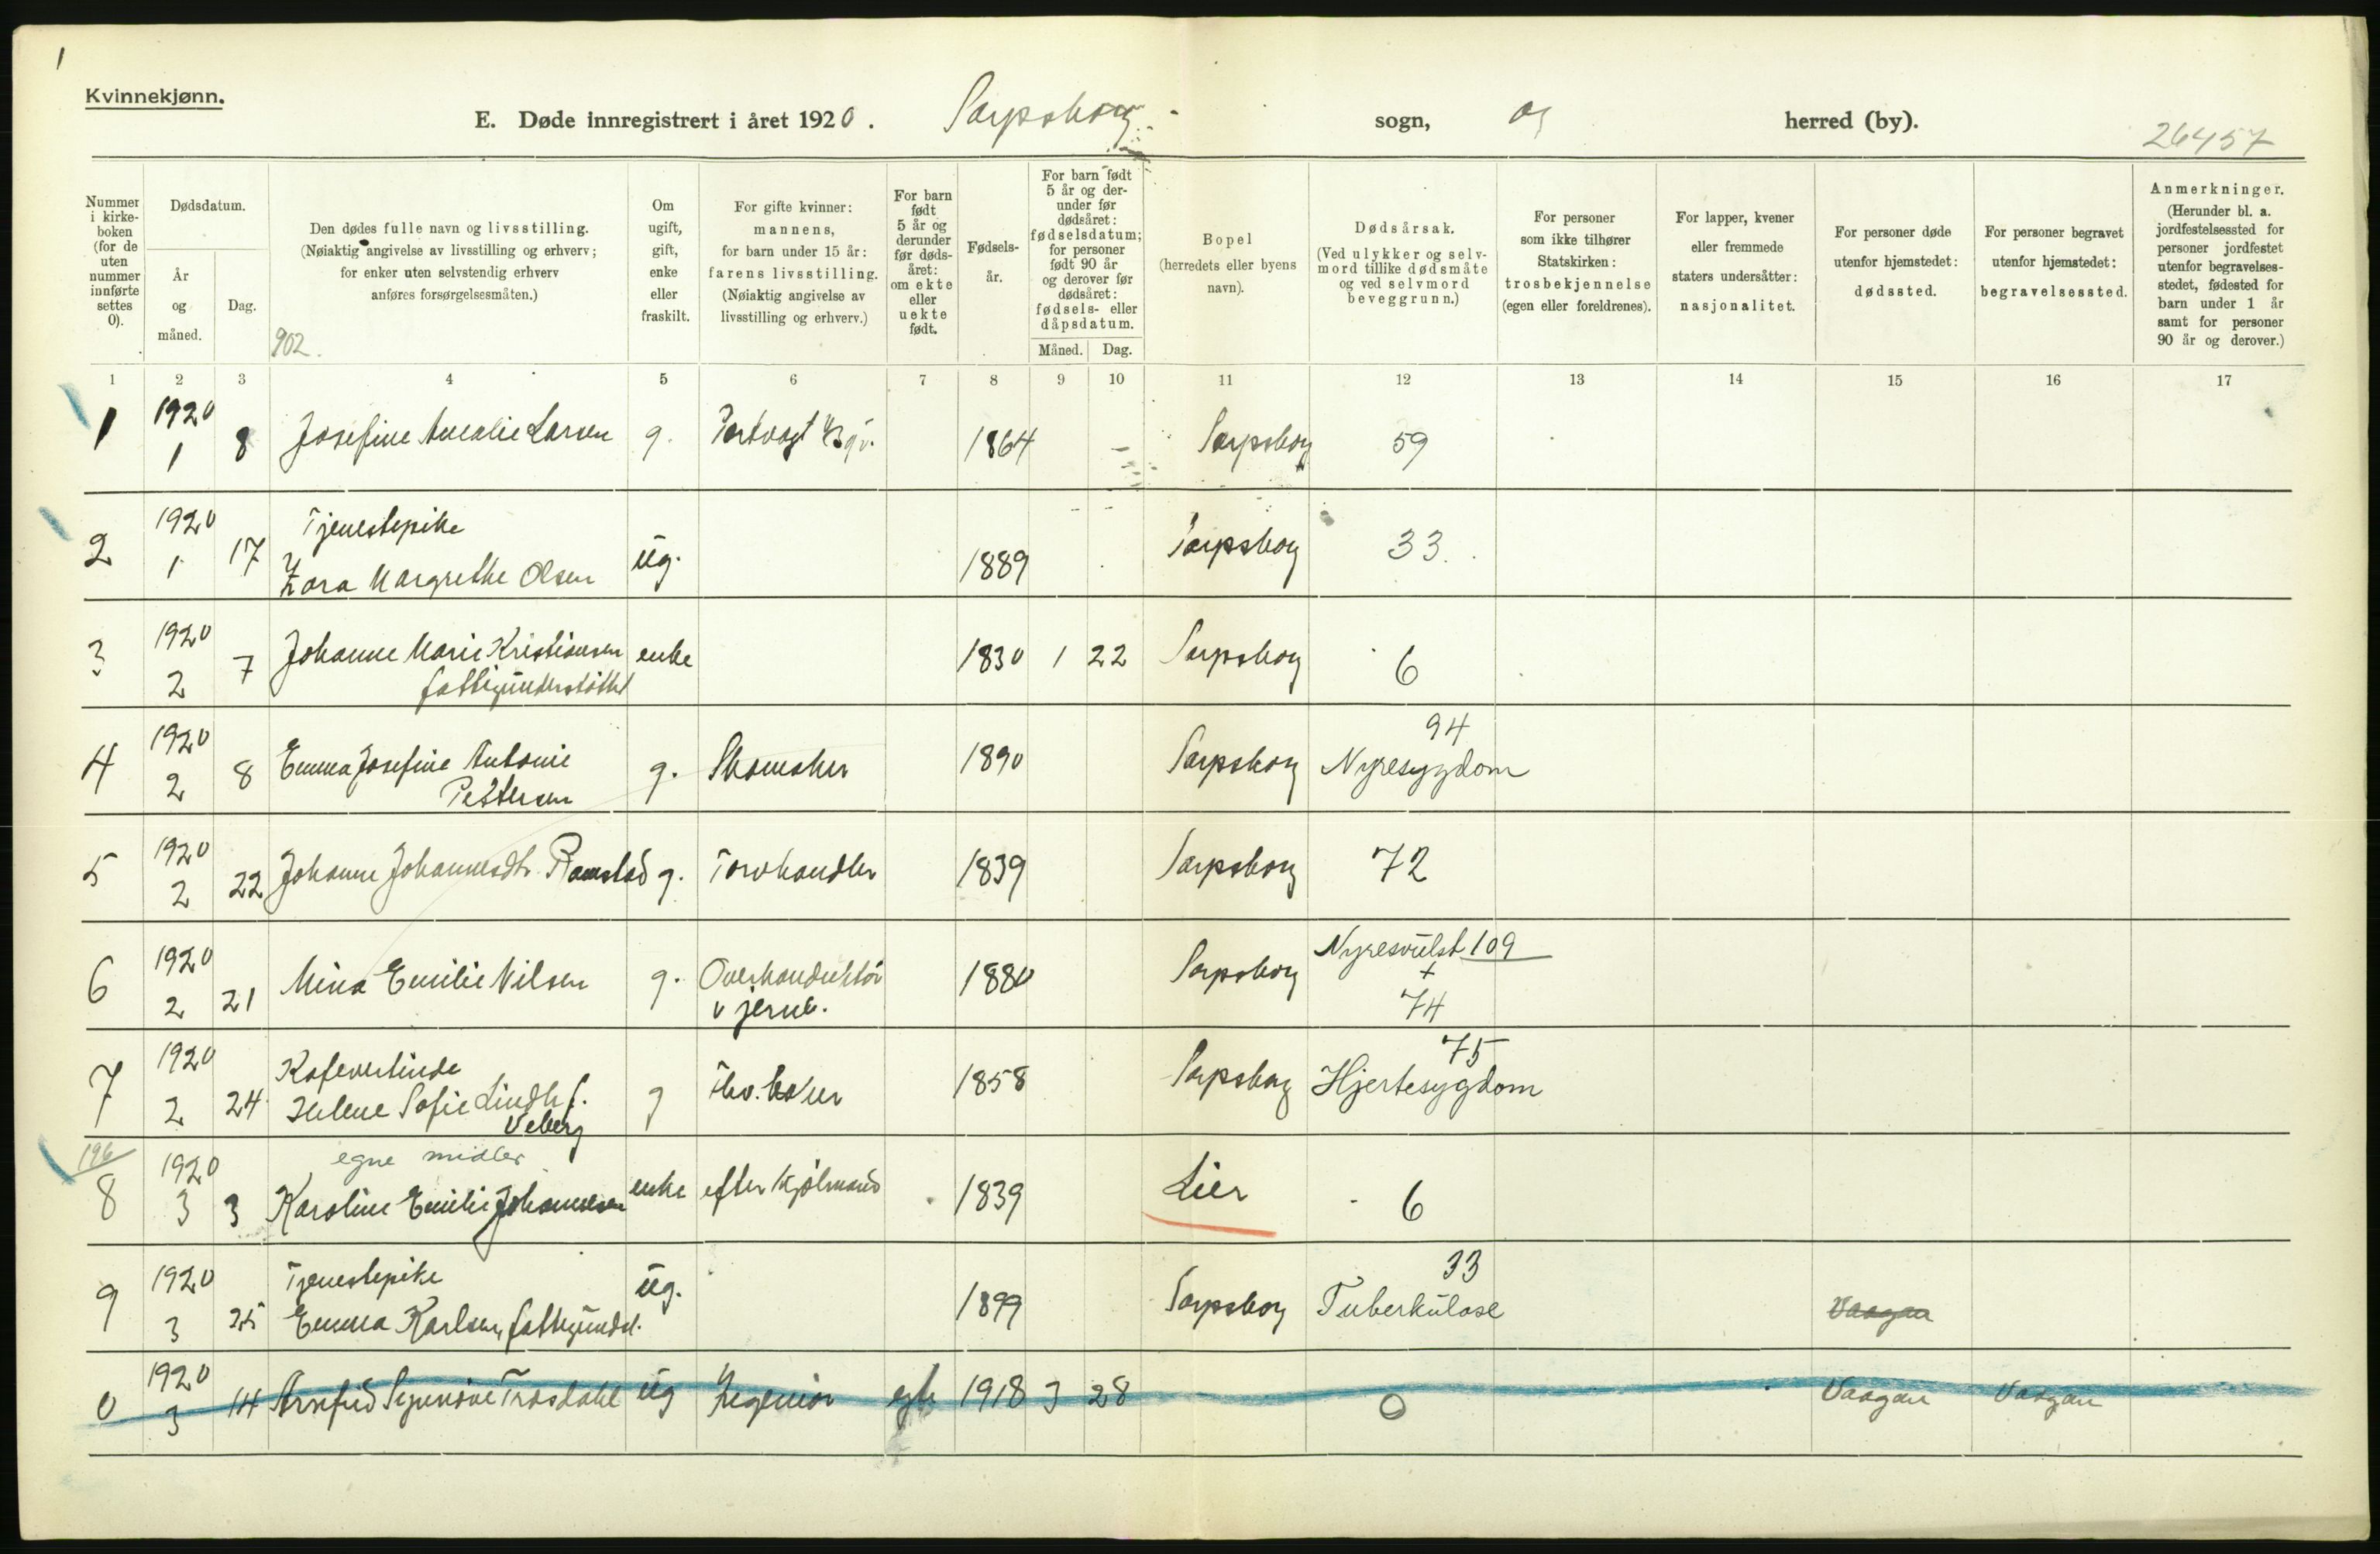 1
Kvinnekjønn.
E. Døde innregistrert i året 1920. Sarpsborg sogn, og herred (by).
26457
Nummer i kirke-boken (for de uten nummer innførte settes 0).
Dødsdatum.
År og måned.
Dag.
Den dødes fulle navn og livsstilling.
(Nøiaktig angivelse av livsstilling og erhverv;
for enker uten selvstendig erhverv
anføres forsørgelsesmåten.)
902.
Om ugift, gift, enke eller fraskilt.
For gifte kvinner:
mannens,
for barn under 15 år:
farens livsstilling.
(Nøiaktig angivelse av
livsstilling og erhverv.)
For barn født 5 år og derunder før døds-året: om ekte eller uekte født.
Fødsels-år.
For barn født 5 år og der-under før dødsåret: fødselsdatum; for personer født 90 år og derover før dødsåret: fødsels- eller dåpsdatum.
Måned. Dag.
Bopel
(herredets eller byens
navn).
Dødsårsak.
(Ved ulykker og selv-
mord tillike dødsmåte
og ved selvmord
beveggrunn.)
For personer
som ikke tilhører
Statskirken:
trosbekjennelse
(egen eller foreldrenes).
For lapper, kvener
eller fremmede
staters undersåtter:
nasjonalitet.
For personer døde
utenfor hjemstedet:
dødssted.
For personer begravet
utenfor hjemstedet:
begravelsessted.
Anmerkninger.
(Herunder bl. a.
jordfestelsessted for
personer jordfestet
utenfor begravelses-
stedet, fødested for
barn under 1 år
samt for personer
90 år og derover.)
1 2 3 4 5 6 7 8 9 10 11 12 13 14 15 16 17
1 1920 1 8 Josefine Amalie Larsen g. 1864 Sarpsborg 59
2 1920 1 17 Tjenestepike
Zara Margrethe Olsen ug. 1889 Sarpsborg 33.
3 1920 2 7 Johanne Marie Kristiansen enke 1830 1 22 Sarpsborg 6
fattigunderstøttet
4 1920 2 8 Emma Josefine Antonie
Pettersen g. Skomaker 1890 Sarpsborg 94
Nyresygdom
5 1920 2 22 Johanne Johannesdtr. Ramstad g. Torvhandler 1839 Sarpsborg 72
6 1920 2 21 Mina Emilie Nilsen g. Overkonduktør
v jernb. 1880 Sarpsborg Nyresvulst 109
+
74
7 1920 2 24 Kafevertinde
Helene Sofie Lindh f.
Veberg g 1858 Sarpsborg 75
Hjertesygdom
196
8 1920 3 3 egne midler
Karoline Emilie Johannesen enke efter Kjølmand 1839 Lier 6
9 1920 3 25 Tjenestepike
Emma Karlsen, fattigundst. ug. 1899 Sarpsborg 33
Tuberkulose Vaagan
0 1920 3 14 Arnfrid Synnøve Trosdahl ug Ingeniør egte 1918 3 28 0 Vaagan Vaagan